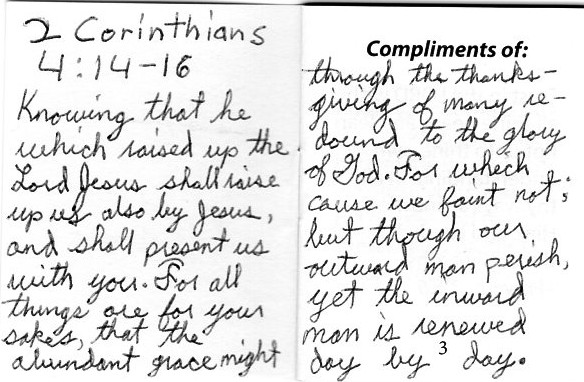 2 Corinthians
4:14-16
Knowing that he
which raised up the
Lord Jesus shall raise
up us also by Jesus,
and shall present us
with you. For all
things are for your
sakes, that the
abundant grace might
Compliments of:
through the thanks-
giving of many re-
dound to the glory
of God. For which
cause we faint not;
but though our
outward man perish,
yet the inward
man is renewed
day by day.
3